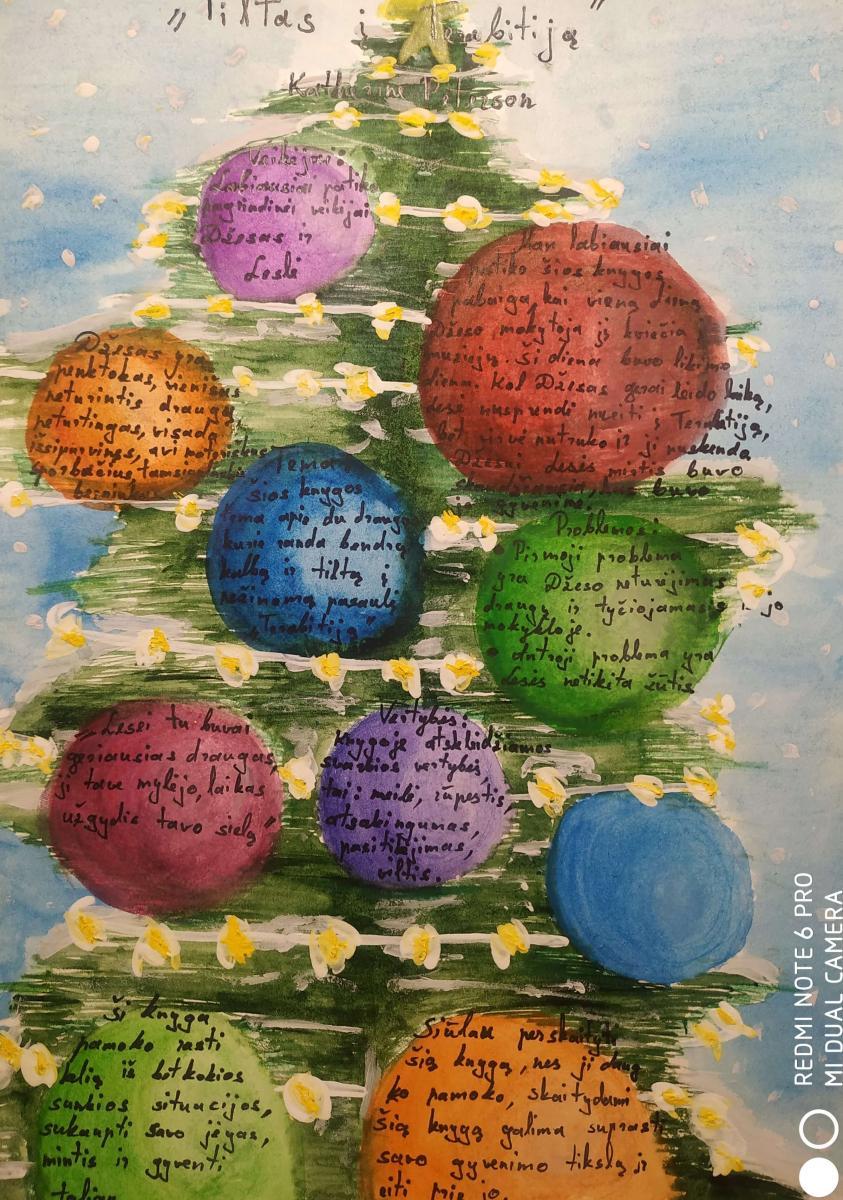 „Tiltas į Terabitiją"
Katherine Paterson
Veikėjai:
Labiausiai patiko
pagrindiniai veikėjai
Džesas ir
Leslė
Man labiausiai
patiko šios knygos
pabaiga, kai vieną dieną
Džeso mokytoja jį kviečia į
muziejų. Ši diena buvo likimo
diena. Kol Džesas gerai leido laiką,
Leslė nusprendė nueiti į Terabitiją,
bet virvė nutrūko ir ji nuskendo
Džesui Leslės mirtis buvo
kas buvo
jo gyvenime.
Džesas yra
penktokas, vienišas
neturintis draugų
neturtingas, visada
išsipurvinęs, avi
sportbačius, tamsiaplaukis
berniukas
Tema
šios knygos
tema apie du draugus
kurie randa bendrą
kalbą ir tiltą į
nežinomą pasaulį
„Terabitiją"
Problemos:
• Pirmoji problema
yra Džeso neturėjimas
draugų ir tyčiojamasis iš jo
mokykloje.
• Antroji problema yra
Leslės netikėta žūtis
„Leslei tu buvai
geriausias draugas,
ji tave mylėjo, laikas
užgydis tavo sielą"
Vertybės:
knygoje atskleidžiamos
svarbios vertybės,
tai: meilė, rūpestis,
atsakingumas,
pasitikėjimas,
viltis.
Ši knyga
pamoko rasti
kelią iš bet kokios
sunkios situacijos,
sukaupti savo jėgas,
mintis ir gyventi
toliau
Siūlau perskaityti
šią knygą, nes ji daug
ko pamoko, skaitydami
šią knygą galima suprasti
savo gyvenimo tikslą ir
eiti prie jo.
REDMI NOTE 6 PRO
MI DUAL CAMERA